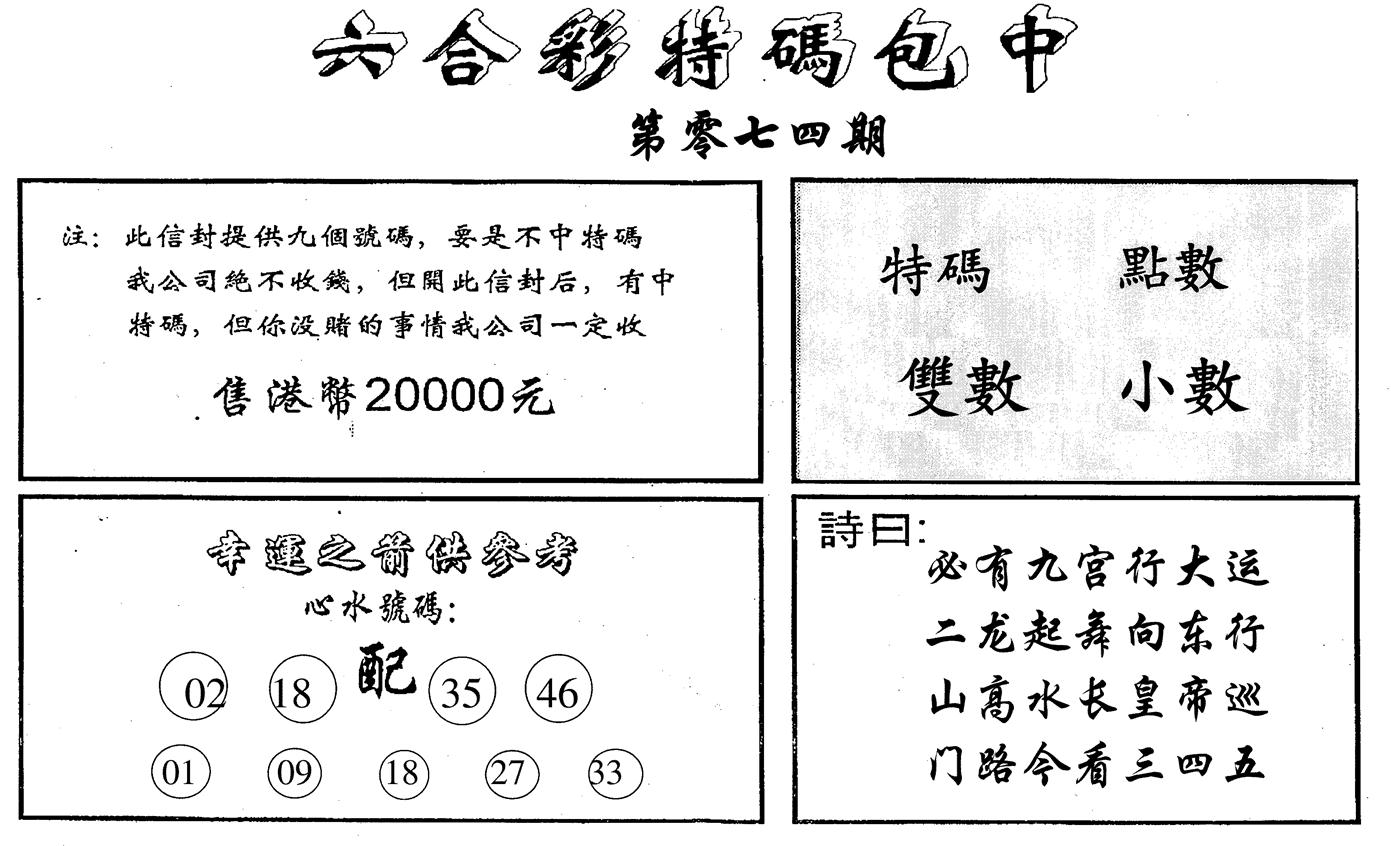 六合彩特碼包中
第零七四期
注：此信封提供九個號碼，要是不中特碼
我公司絕不收錢，但開此信封后，有中
特碼，但你没賭的事情我公司一定收
售港幣20000元
特碼 點數
雙數 小數
幸運之箭供參考
心水號碼：
02 18 配 35 46
01 09 18 27 33
詩曰：
必有九宫行大运
二龙起舞向东行
山高水长皇帝巡
门路今看三四五